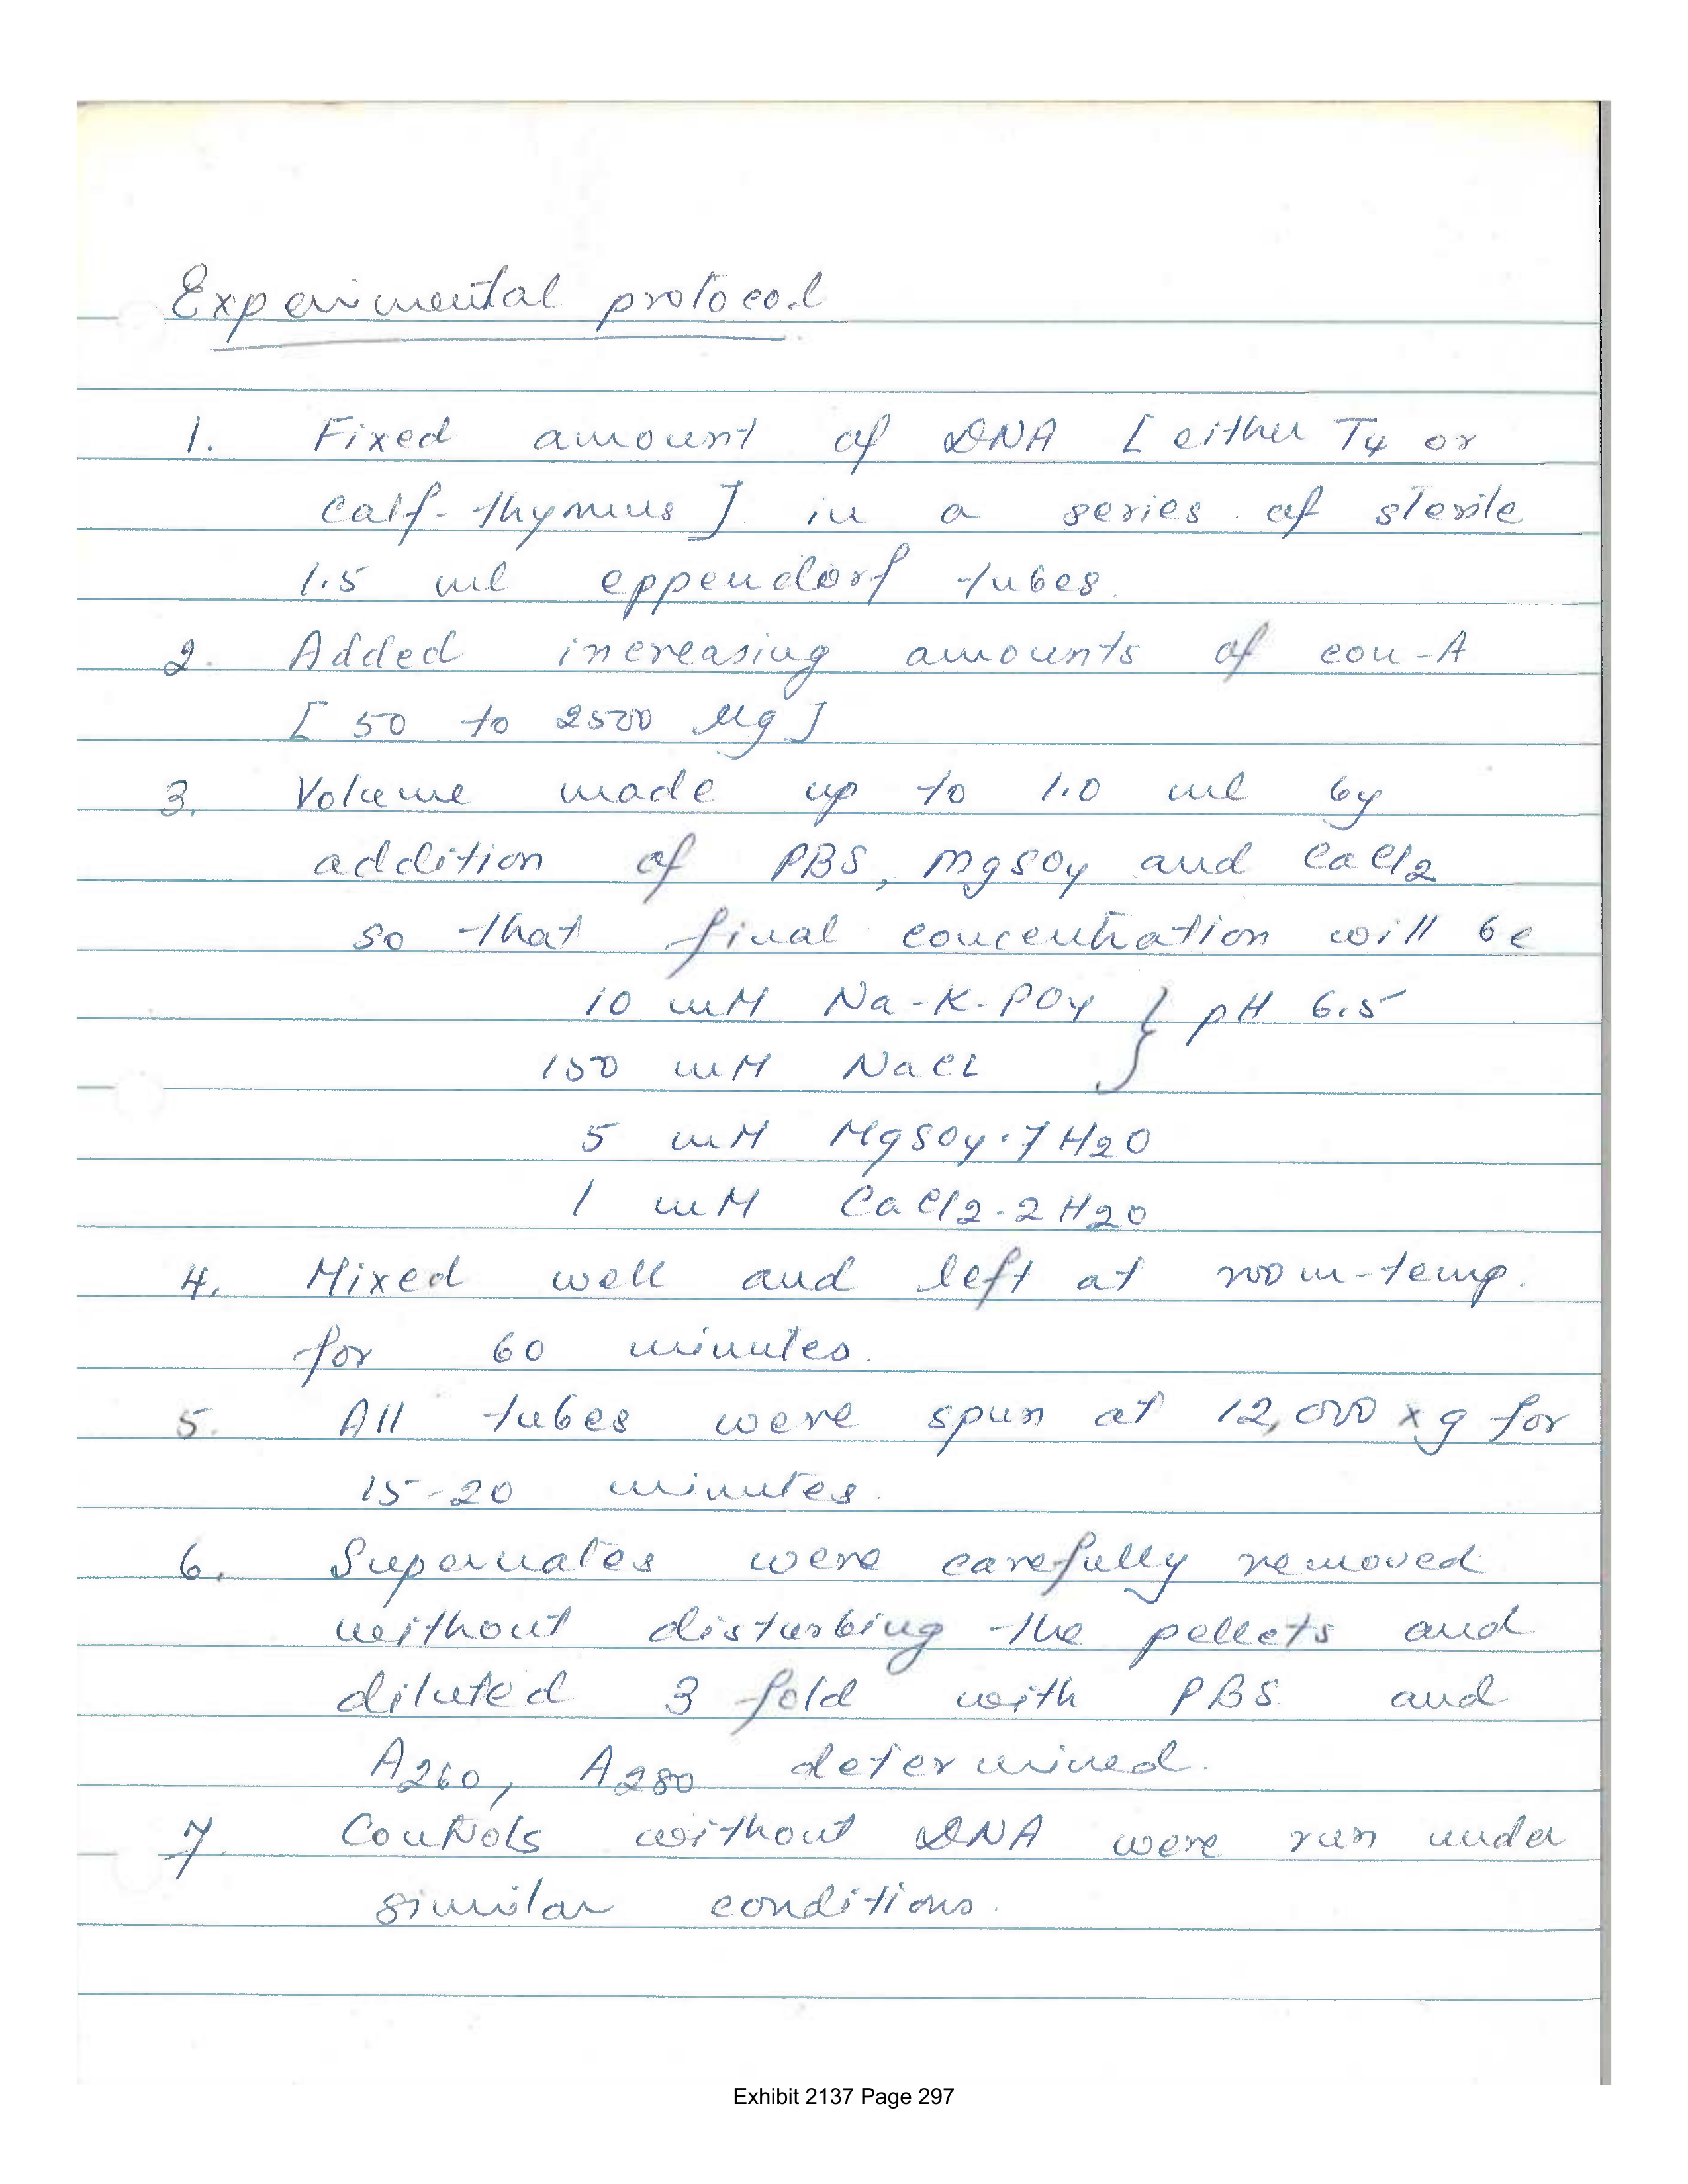 Experimental protocol
1. Fixed amount of DNA [either T4 or
Calf-thymus] in a series of sterile
1.5 ml eppendorf tubes.
2. Added increasing amounts of con-A
[50 to 2500 µg]
3. Volume made up to 1.0 ml by
addition of PBS, MgSO4 and CaCl2
so that final concentration will be
10 mM Na-K-PO4 } pH 6.5
150 mM NaCl
5 mM MgSO4·7H2O
1 mM CaCl2·2H2O
4. Mixed well and left at room-temp.
for 60 minutes.
5. All tubes were spun at 12,000 xg for
15-20 minutes.
6. Supernates were carefully removed
without disturbing the pellets and
diluted 3 fold with PBS and
A260, A280 determined.
7. Controls without DNA were run under
similar conditions.
Exhibit 2137 Page 297